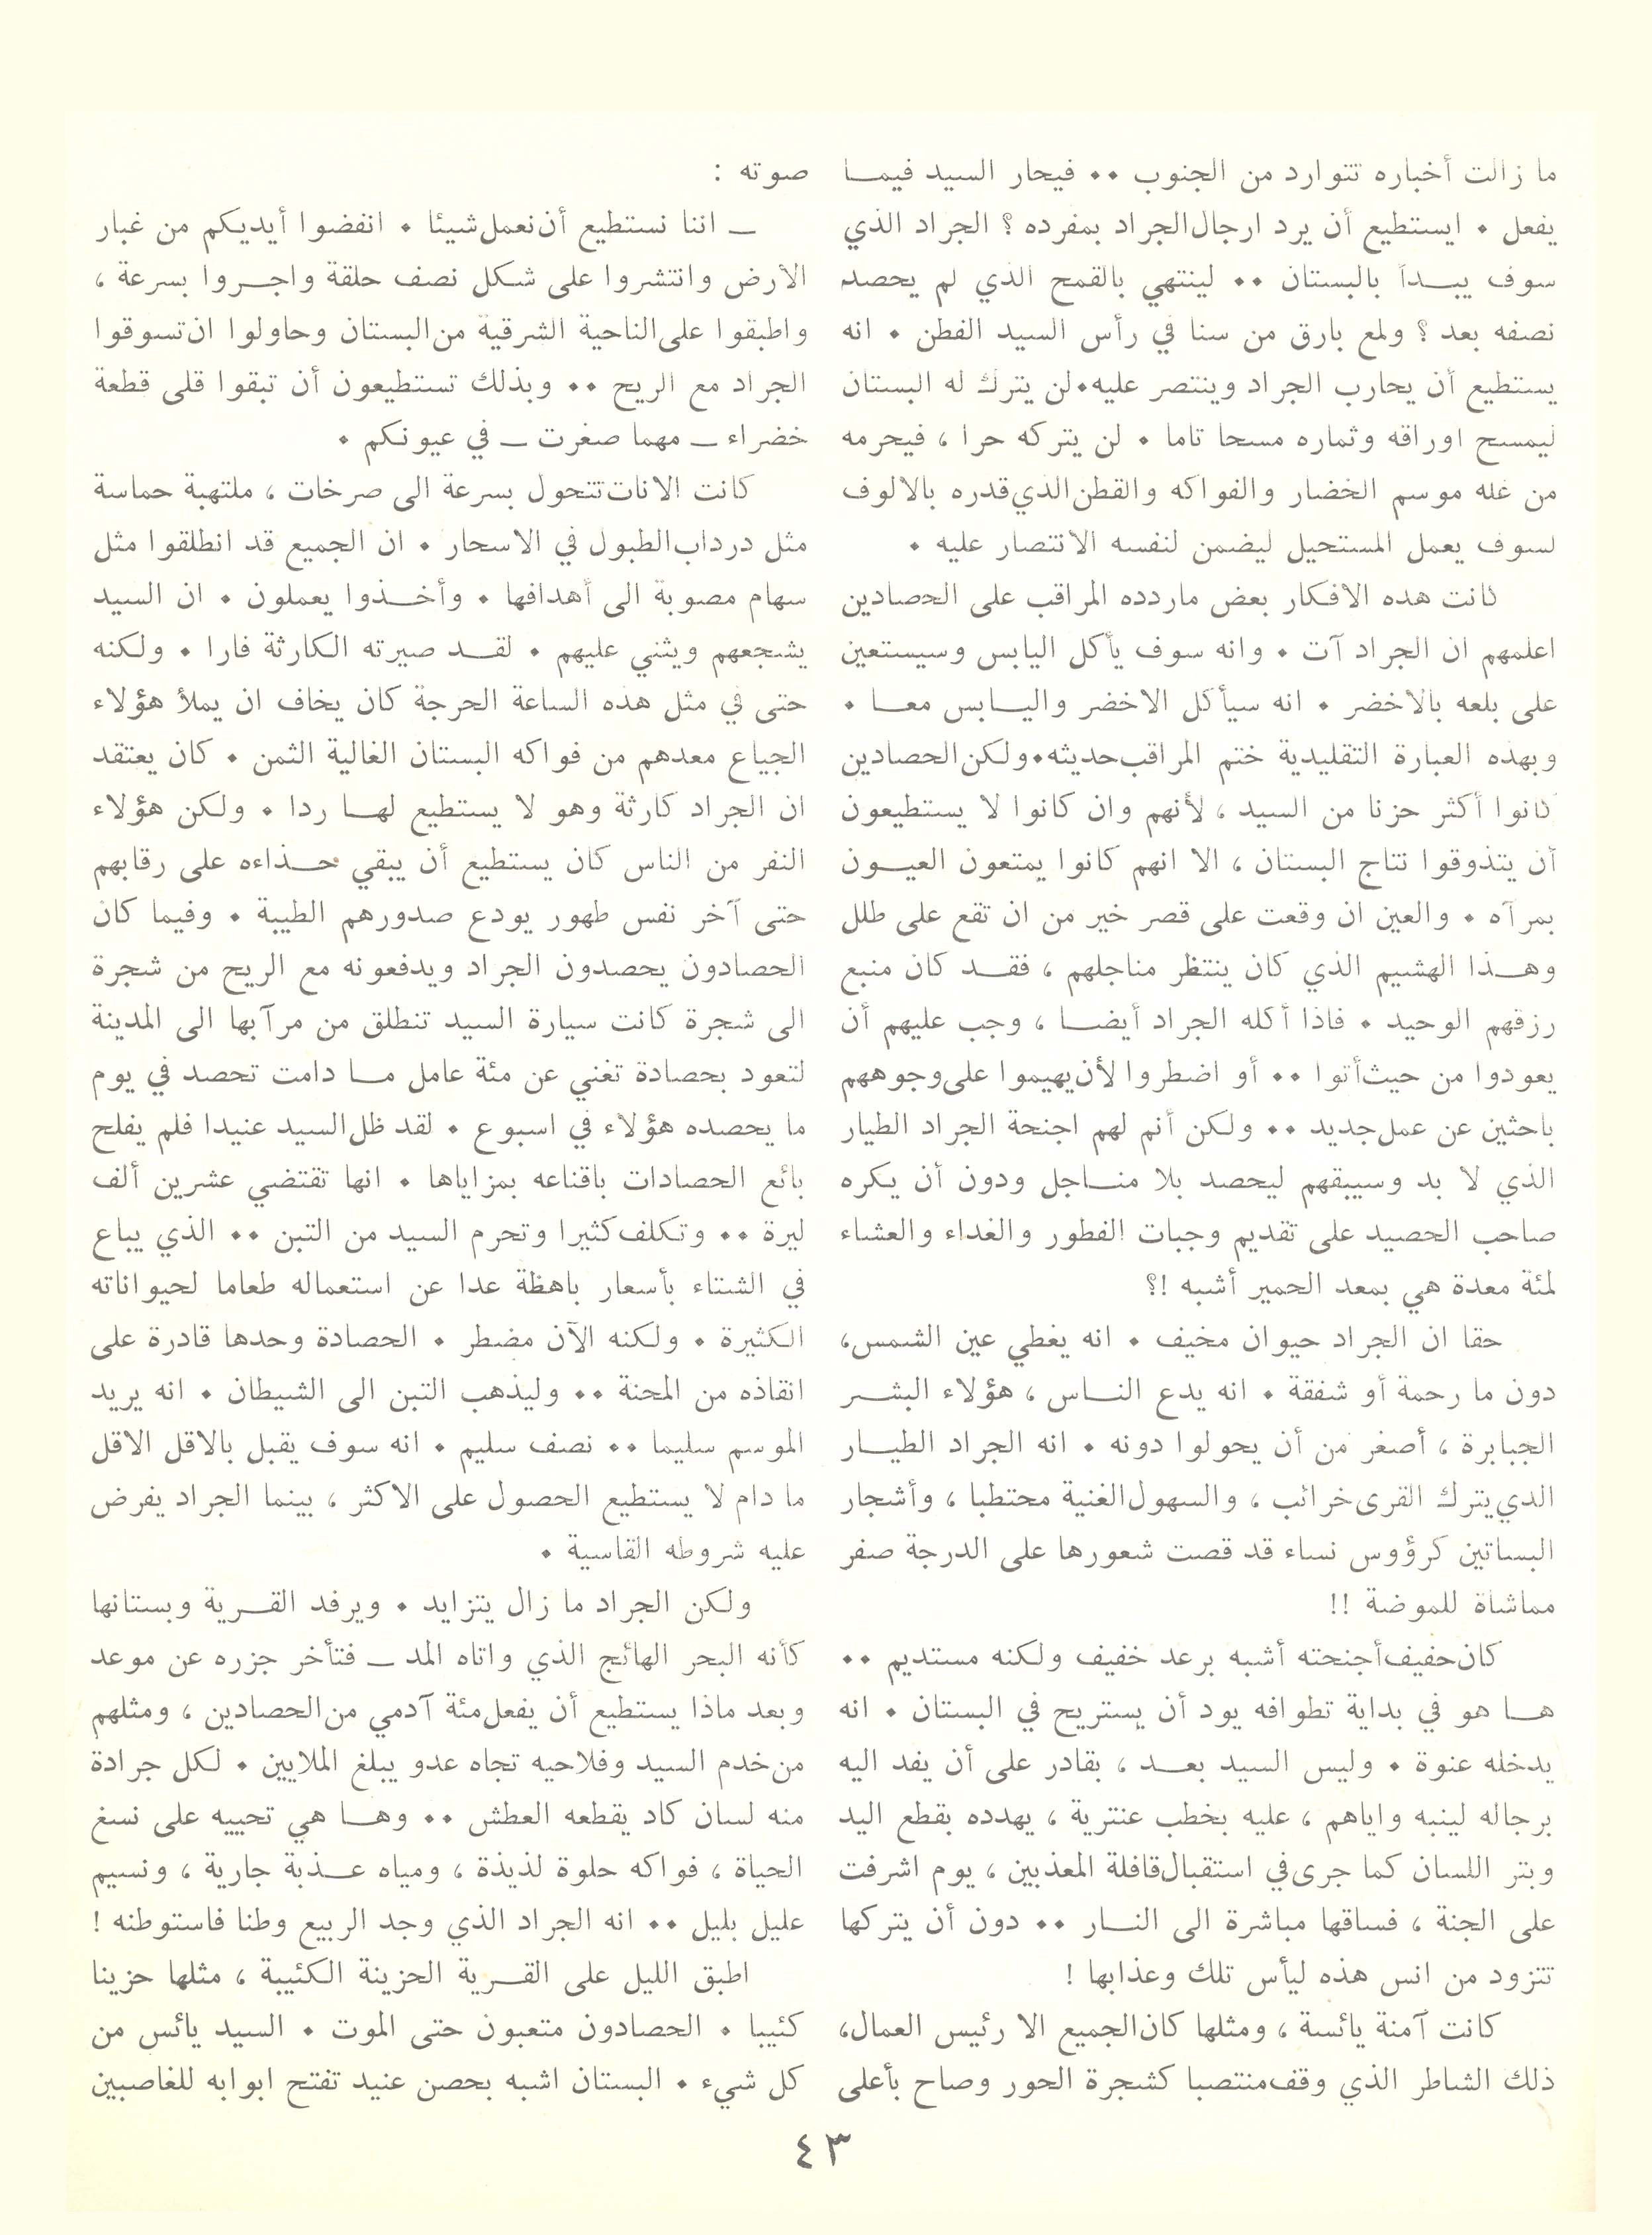 ما زالت أخباره تتوارد من الجنوب ٠٠ فيحار السيد فيمــا
يفعل ٠ ايستطيع أن يرد ارجال الجراد بمفرده ؟ الجراد الذي
سوف يبــدأ بالبستان ٠٠ لينتهي بالقمح الذي لم يحصد
نصفه بعد ؟ ولمع بارق من سنا في رأس السيد الفطن ٠ انه
يستطيع أن يحارب الجراد وينتصر عليه٠لن يترك له البستان
ليمسح اوراقه وثماره مسحا تاما ٠ لن يتركه حرا ، فيحرمه
من غله موسم الخضار والفواكه والقطن الذي قدره بالالوف
لسوف يعمل المستحيل ليضمن لنفسه الانتصار عليه ٠
كانت هذه الافكار بعض ماردده المراقب على الحصادين
اعلمهم ان الجراد آت ٠ وانه سوف يأكل اليابس وسيستعين
على بلعه بالاخضر ٠ انه سيأكل الاخضر واليــابس معــا ٠
وبهذه العبارة التقليدية ختم المراقب حديثه٠ولكن الحصادين
كانوا أكثر حزنا من السيد ، لأنهم وان كانوا لا يستطيعون
أن يتذوقوا نتاج البستان ، الا انهم كانوا يمتعون العيــون
بمرآه ٠ والعين ان وقعت على قصر خير من ان تقع على طلل
وهــذا الهشيم الذي كان ينتظر مناجلهم ، فقــد كان منبع
رزقهم الوحيد ٠ فاذا أكله الجراد أيضــا ، وجب عليهم أن
يعودوا من حيث أتوا ٠٠ أو اضطروا لأن يهيموا على وجوههم
باحثين عن عمل جديد ٠٠ ولكن أنم لهم اجنحة الجراد الطيار
الذي لا بد وسيبقهم ليحصد بلا منــاجل ودون أن يكره
صاحب الحصيد على تقديم وجبات الفطور والغداء والعشاء
لمئة معدة هي بمعد الحمير أشبه !؟
حقا ان الجراد حيوان مخيف ٠ انه يغطي عين الشمس،
دون ما رحمة أو شفقة ٠ انه يدع النــاس ، هؤلاء البشــر
الجبابرة ، أصغر من أن يحولوا دونه ٠ انه الجراد الطيــار
الذي يترك القرى خرائب ، والسهول الغنية محتطبا ، وأشجار
البساتين كرؤوس نساء قد قصت شعورها على الدرجة صفر
مماشاة للموضة !!
كان حفيف أجنحته أشبه برعد خفيف ولكنه مستديم ٠٠
هــا هو في بداية تطوافه يود أن يستريح في البستان ٠ انه
يدخله عنوة ٠ وليس السيد بعــد ، بقادر على أن يفد اليه
برجاله لينبه واياهم ، عليه بخطب عنترية ، يهدده بقطع اليد
وبتر اللسان كما جرى في استقبال قافلة المعذبين ، يوم اشرفت
على الجنة ، فساقها مباشرة الى النــار ٠٠ دون أن يتركها
تتزود من انس هذه ليأس تلك وعذابها !
كانت آمنة يائسة ، ومثلها كان الجميع الا رئيس العمال،
ذلك الشاطر الذي وقف منتصبا كشجرة الحور وصاح بأعلى
صوته :
ــ اننا نستطيع أن نعمل شيئا ٠ انفضوا أيديكم من غبار
الأرض وانتشروا على شكل نصف حلقة واجــروا بسرعة ،
واطبقوا على الناحية الشرقية من البستان وحاولوا ان تسوقوا
الجراد مع الريح ٠٠ وبذلك تستطيعون أن تبقوا قلى قطعة
خضراء ــ مهما صغرت ــ في عيونكم ٠
كانت الانات تتحول بسرعة الى صرخات ، ملتهبة حماسة
مثل درداب الطبول في الاسحار ٠ ان الجميع قد انطلقوا مثل
سهام مصوبة الى أهدافها ٠ وأخــذوا يعملون ٠ ان السيد
يشجعهم ويثني عليهم ٠ لقــد صيرته الكارثة فارا ٠ ولكنه
حتى في مثل هذه الساعة الحرجة كان يخاف ان يملأ هؤلاء
الجياع معدهم من فواكه البستان الغالية الثمن ٠ كان يعتقد
ان الجراد كارثة وهو لا يستطيع لهــا ردا ٠ ولكن هؤلاء
النفر من الناس كان يستطيع أن يبقي حــذاءه على رقابهم
حتى آخر نفس طهور يودع صدورهم الطيبة ٠ وفيما كان
الحصادون يحصدون الجراد ويدفعونه مع الريح من شجرة
الى شجرة كانت سيارة السيد تنطلق من مرآبها الى المدينة
لتعود بحصادة تغني عن مئة عامل مــا دامت تحصد في يوم
ما يحصده هؤلاء في اسبوع ٠ لقد ظل السيد عنيدا فلم يفلح
بائع الحصادات باقناعه بمزاياها ٠ انها تقتضي عشرين ألف
ليرة ٠٠ وتكلف كثيرا وتحرم السيد من التبن ٠٠ الذي يباع
في الشتاء بأسعار باهظة عدا عن استعماله طعاما لحيواناته
الكثيرة ٠ ولكنه الآن مضطر ٠ الحصادة وحدها قادرة على
انقاذه من المحنة ٠٠ وليذهب التبن الى الشيطان ٠ انه يريد
الموسم سليما ٠٠ نصف سليم ٠ انه سوف يقبل بالاقل الاقل
ما دام لا يستطيع الحصول على الاكثر ، بينما الجراد يفرض
عليه شروطه القاسية ٠
ولكن الجراد ما زال يتزايد ٠ ويرفد القــرية وبستانها
كأنه البحر الهائج الذي واتاه المد ــ فتأخر جزره عن موعد
وبعد ماذا يستطيع أن يفعل مئة آدمي من الحصادين ، ومثلهم
من خدم السيد وفلاحيه تجاه عدو يبلغ الملايين ٠ لكل جرادة
منه لسان كاد يقطعه العطش ٠٠ وهــا هي تحييه على نسغ
الحياة ، فواكه حلوة لذيذة ، ومياه عــذبة جارية ، ونسيم
عليل بليل ٠٠ انه الجراد الذي وجد الربيع وطنا فاستوطنه !
اطبق الليل على القــرية الحزينة الكئيبة ، مثلها حزينا
كئيبا ٠ الحصادون متعبون حتى الموت ٠ السيد يائس من
كل شيء ٠ البستان اشبه بحصن عنيد تفتح ابوابه للغاصبين
٤٣